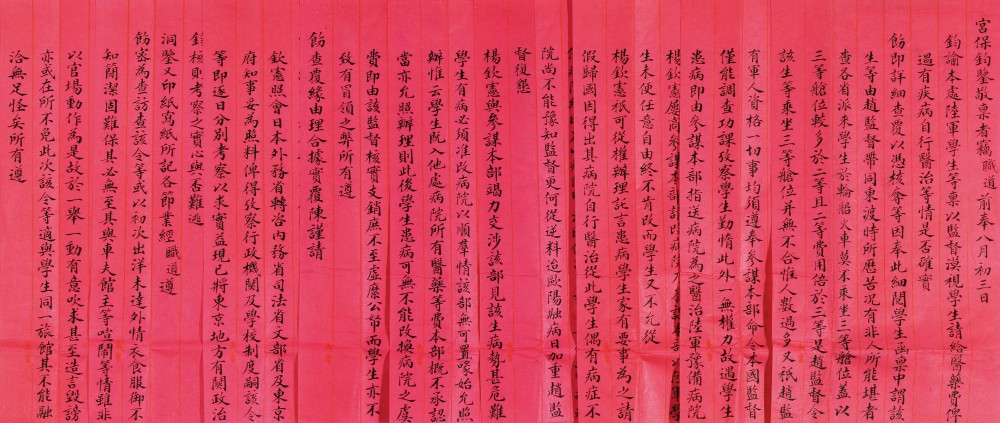 宮保鈞鑒敬稟者竊職道前奉八月初三日
鈞諭本處陸軍學生等稟以監督漠視學生請給醫藥費俾
遇有疾病自行醫治等情是否確實
飭即詳細查覆以憑核奪等因奉此細閱學生函稟中謂該
生等由趙監督帶同東渡時所歷苦況有非人所能堪者
查各省派來學生於輪船火車莫不乘坐三等艙位蓋以
三等艙位較多於二等且二等費用倍於三等是趙監督令
該生等乘坐三等艙位并無不合惟人數過多又秖趙監
有軍人資格一切事均須遵奉參謀本部命令本國監督
僅能調查功課攷察學生勤惰此外一無權力故遇學生
患病即由參謀本部指送病院為之醫治陸軍豫備病院
楊欽憲屢商參謀本部
生未便任意自由終不肯改而學生又不允從
楊欽憲祇可從權辦理託言患病學生家有要事為之請
假歸國因得出其病院自行醫治從此學生偶有病症不
院尚不能豫知監督更何從逆料迨歐陽融病日加重趙監
督復懇
楊欽憲與參謀本部竭力交涉該部見該生病勢甚危難
學生有病必須准改病院以順羣情該部無可置喙始允照
辦惟云學生既入他處病院所有醫藥等費本部概不承認
當亦允照辦理則此後學生患病可無不能改換病院之虞
費即由該監督核實支銷庶不至虛糜公帑而學生亦不
致有冒領之弊所有遵
飭查覆緣由理合據實覆陳謹請
欽憲照會日本外務省轉咨內務省司法省文部省及東京
府知事妥為照料俾得攷察行政機關及學校制度嗣該令
等即逐日分別考察以求實益現已將東京地方有關政治
錄核則考察之實心與否難逃
洞鑒又印紙寫紙所記各節業經職道遵
飭密為查訪查該令等或以初次出洋未達外情衣食服御不
知簡潔固難保其必無至其與車夫館主等喧鬧等情雖非
以官場動作為是故於一舉一動有意吹求甚至造言毀謗
亦或在所不免此次該令等適與學生同一旅館其不能融
洽無足怪矣所有遵